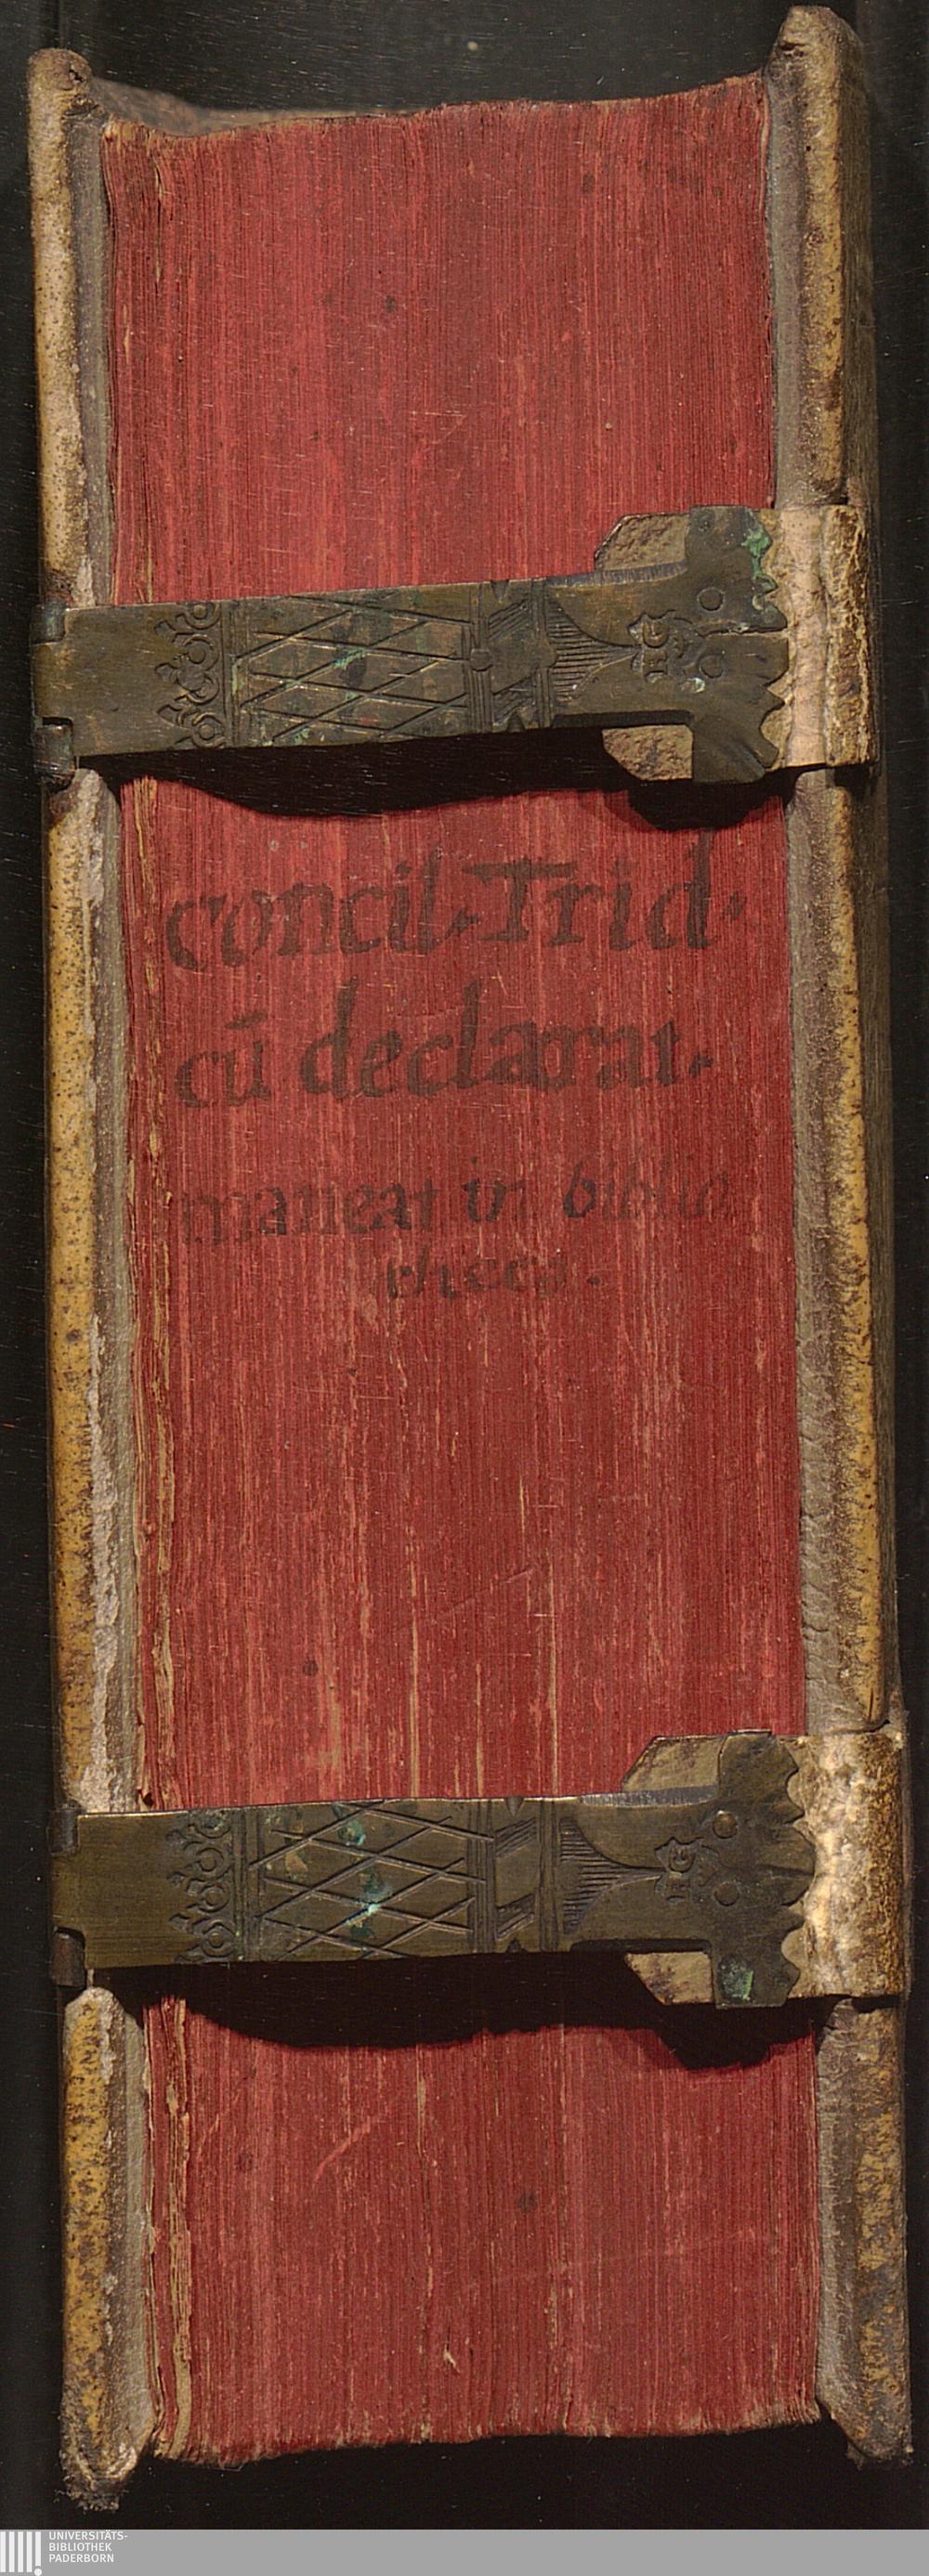 concil. Trid.
cū declarat.
maneat in biblio
theca.
UNIVERSITÄTS-
BIBLIOTHEK
PADERBORN